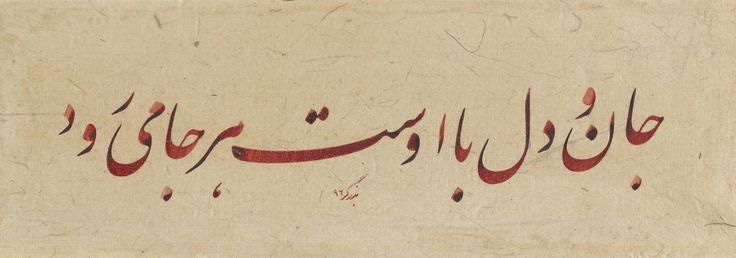 جان و دل با اوست هر جا می رود